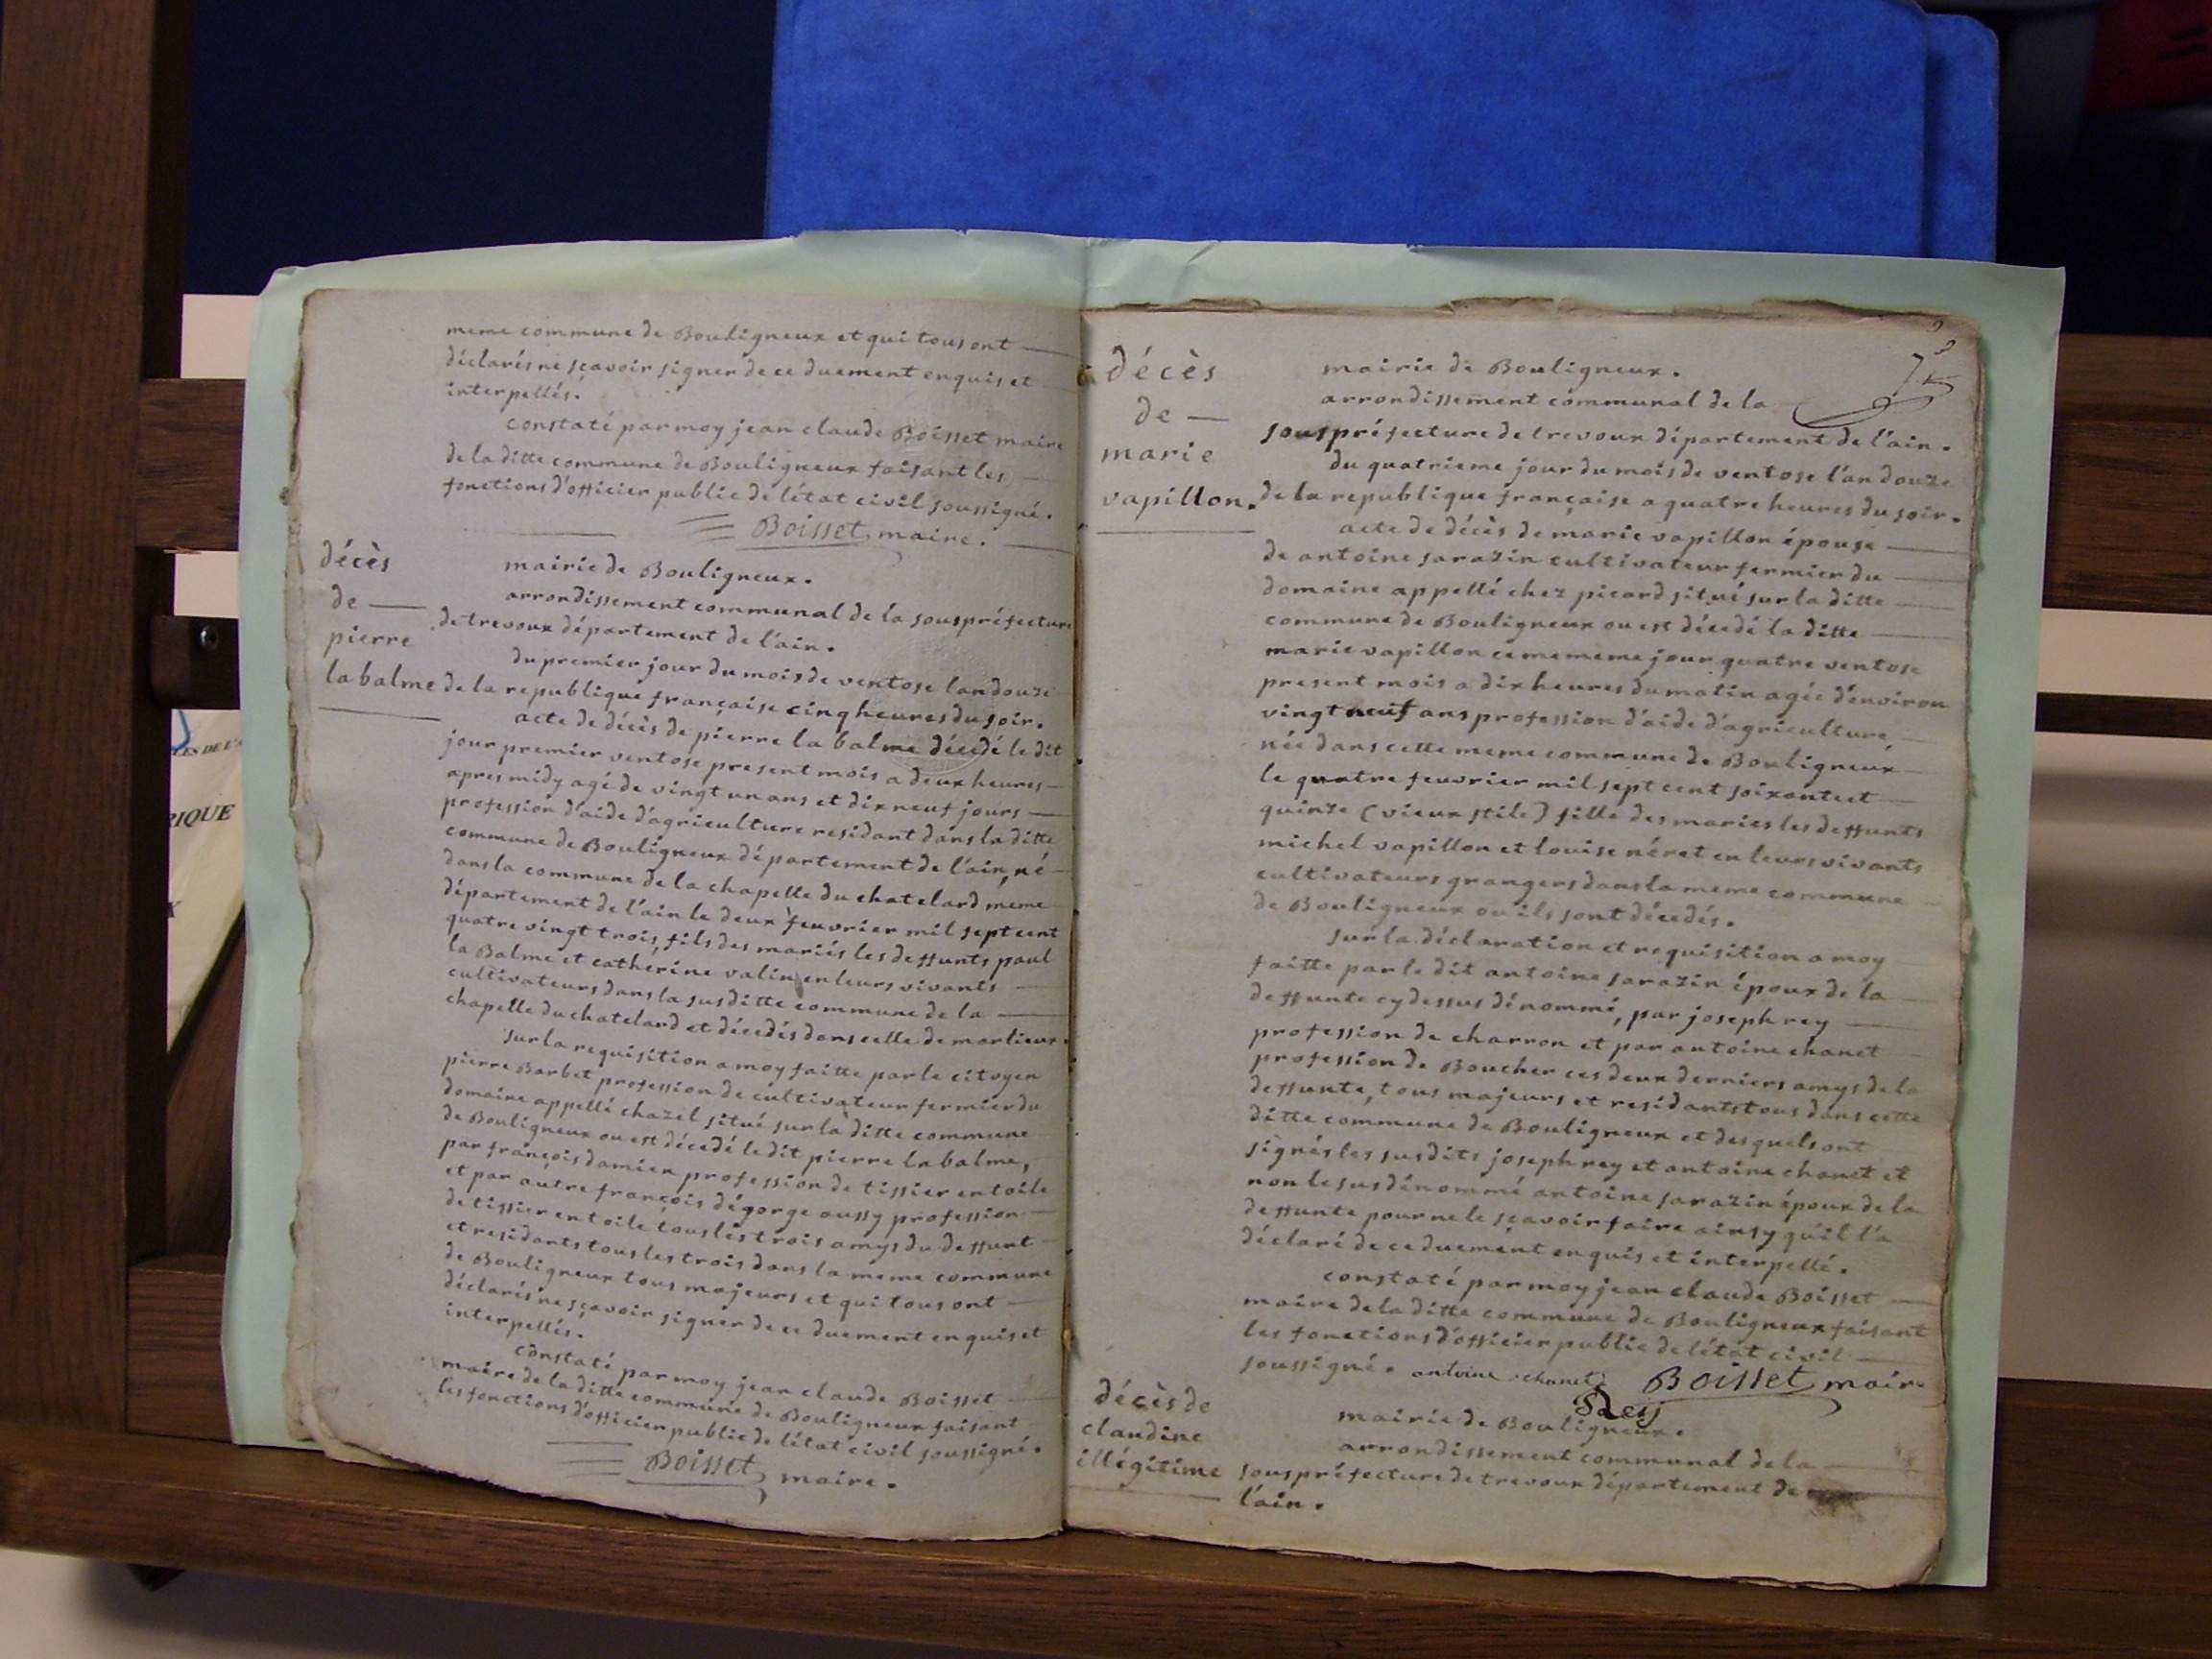 meme commune de Bouligneux et qui tous ont
déclarés ne sçavoir signer de ce duement enquis et
interpellés.
constaté par moy jean claude Boisset maire
de la ditte commune de Bouligneux faisant les
fonctions d'officier public de l'état civil soussigné.
Boisset maire.
décès
de
pierre
la balme
mairie de Bouligneux.
arrondissement communal de la souspréfecture
de trevoux département de l'ain.
du premier jour du mois de ventose lan douze
de la republique française cinq heures du soir.
acte de décès de pierre la balme décédé le dit
jour premier ventose present mois a deux heures
apres midy agé de vingt un ans et dix neuf jours
profession d'aide d'agriculture residant dans la ditte
commune de Bouligneux département de l'ain, né
dans la commune de la chapelle du chatelard meme
département de l'ain le deux feuvrier mil sept cent
quatre vingt trois, fils des mariés les deffunts paul
la Balme et catherine valin en leurs vivants
cultivateurs dans la susditte commune de la
chapelle du chatelard et décédés dans celle de marlieux.
Sur la requisition a moy faitte par le citoyen
pierre Barbet profession de cultivateur fermier du
domaine appellé chazel situé sur la ditte commune
de Bouligneux ou est décedé le dit pierre la balme,
par françois damien profession de tissier en toile
et par autre françois dégorge aussy profession
de tissier en toile tous les trois amys du deffunt
et residants tous les trois dans la meme commune
de Bouligneux tous majeurs et qui tous ont
déclarés ne sçavoir signer de ce duement enquis et
interpellés.
constaté par moy jean claude Boisset
maire de la ditte commune de Bouligneux faisant
les fonctions d'officier public de l'état civil soussigné.
Boisset maire.
décès
de
marie
vapillon.
mairie de Bouligneux.
arrondissement communal de la
souspréfecture de trevoux département de l'ain.
du quatrieme jour du mois de ventose l'an douze
de la republique française a quatre heures du soir.
acte de décès de marie vapillon épouse
de antoine sarazin cultivateur fermier du
domaine appellé chez picard situé sur la ditte
commune de Bouligneux ou est décedé la ditte
marie vapillon ce mememe jour quatre ventose
present mois a dix heures du matin agée d'environ
vingt neuf ans profession d'aide d'agriculture
née dans cette meme commune de Bouligneux
le quatre feuvrier mil sept cent soixante et
quinze (vieux stile) fille des mariés les deffunts
michel vapillon et louise néret en leurs vivants
cultivateurs grangers dans la meme commune
de Bouligneux ou ils sont décedés.
Sur la déclaration et requisition a moy
faitte par le dit antoine sarazin époux de la
deffunte cy dessus dénommé, par joseph rey
profession de charron et par antoine chanet
profession de Boucher ces deux derniers amys de la
deffunte, tous majeurs et residants tous dans cette
ditte commune de Bouligneux et desquels ont
signés les susdits joseph rey et antoine chanet et
non le susdénommé antoine sarazin époux de la
deffunte pour ne le sçavoir faire ainsy qu'il l'a
déclaré de ce duement enquis et interpellé.
constaté par moy jean claude Boisset
maire de la ditte commune de Bouligneux faisant
les fonctions d'officier public de l'état civil
soussigné. antoine chanet Boisset maire
Rey
décès de
claudine
illégitime
mairie de Bouligneux.
arrondissement communal de la
souspréfecture de trevoux département de
l'ain.
RIQUE